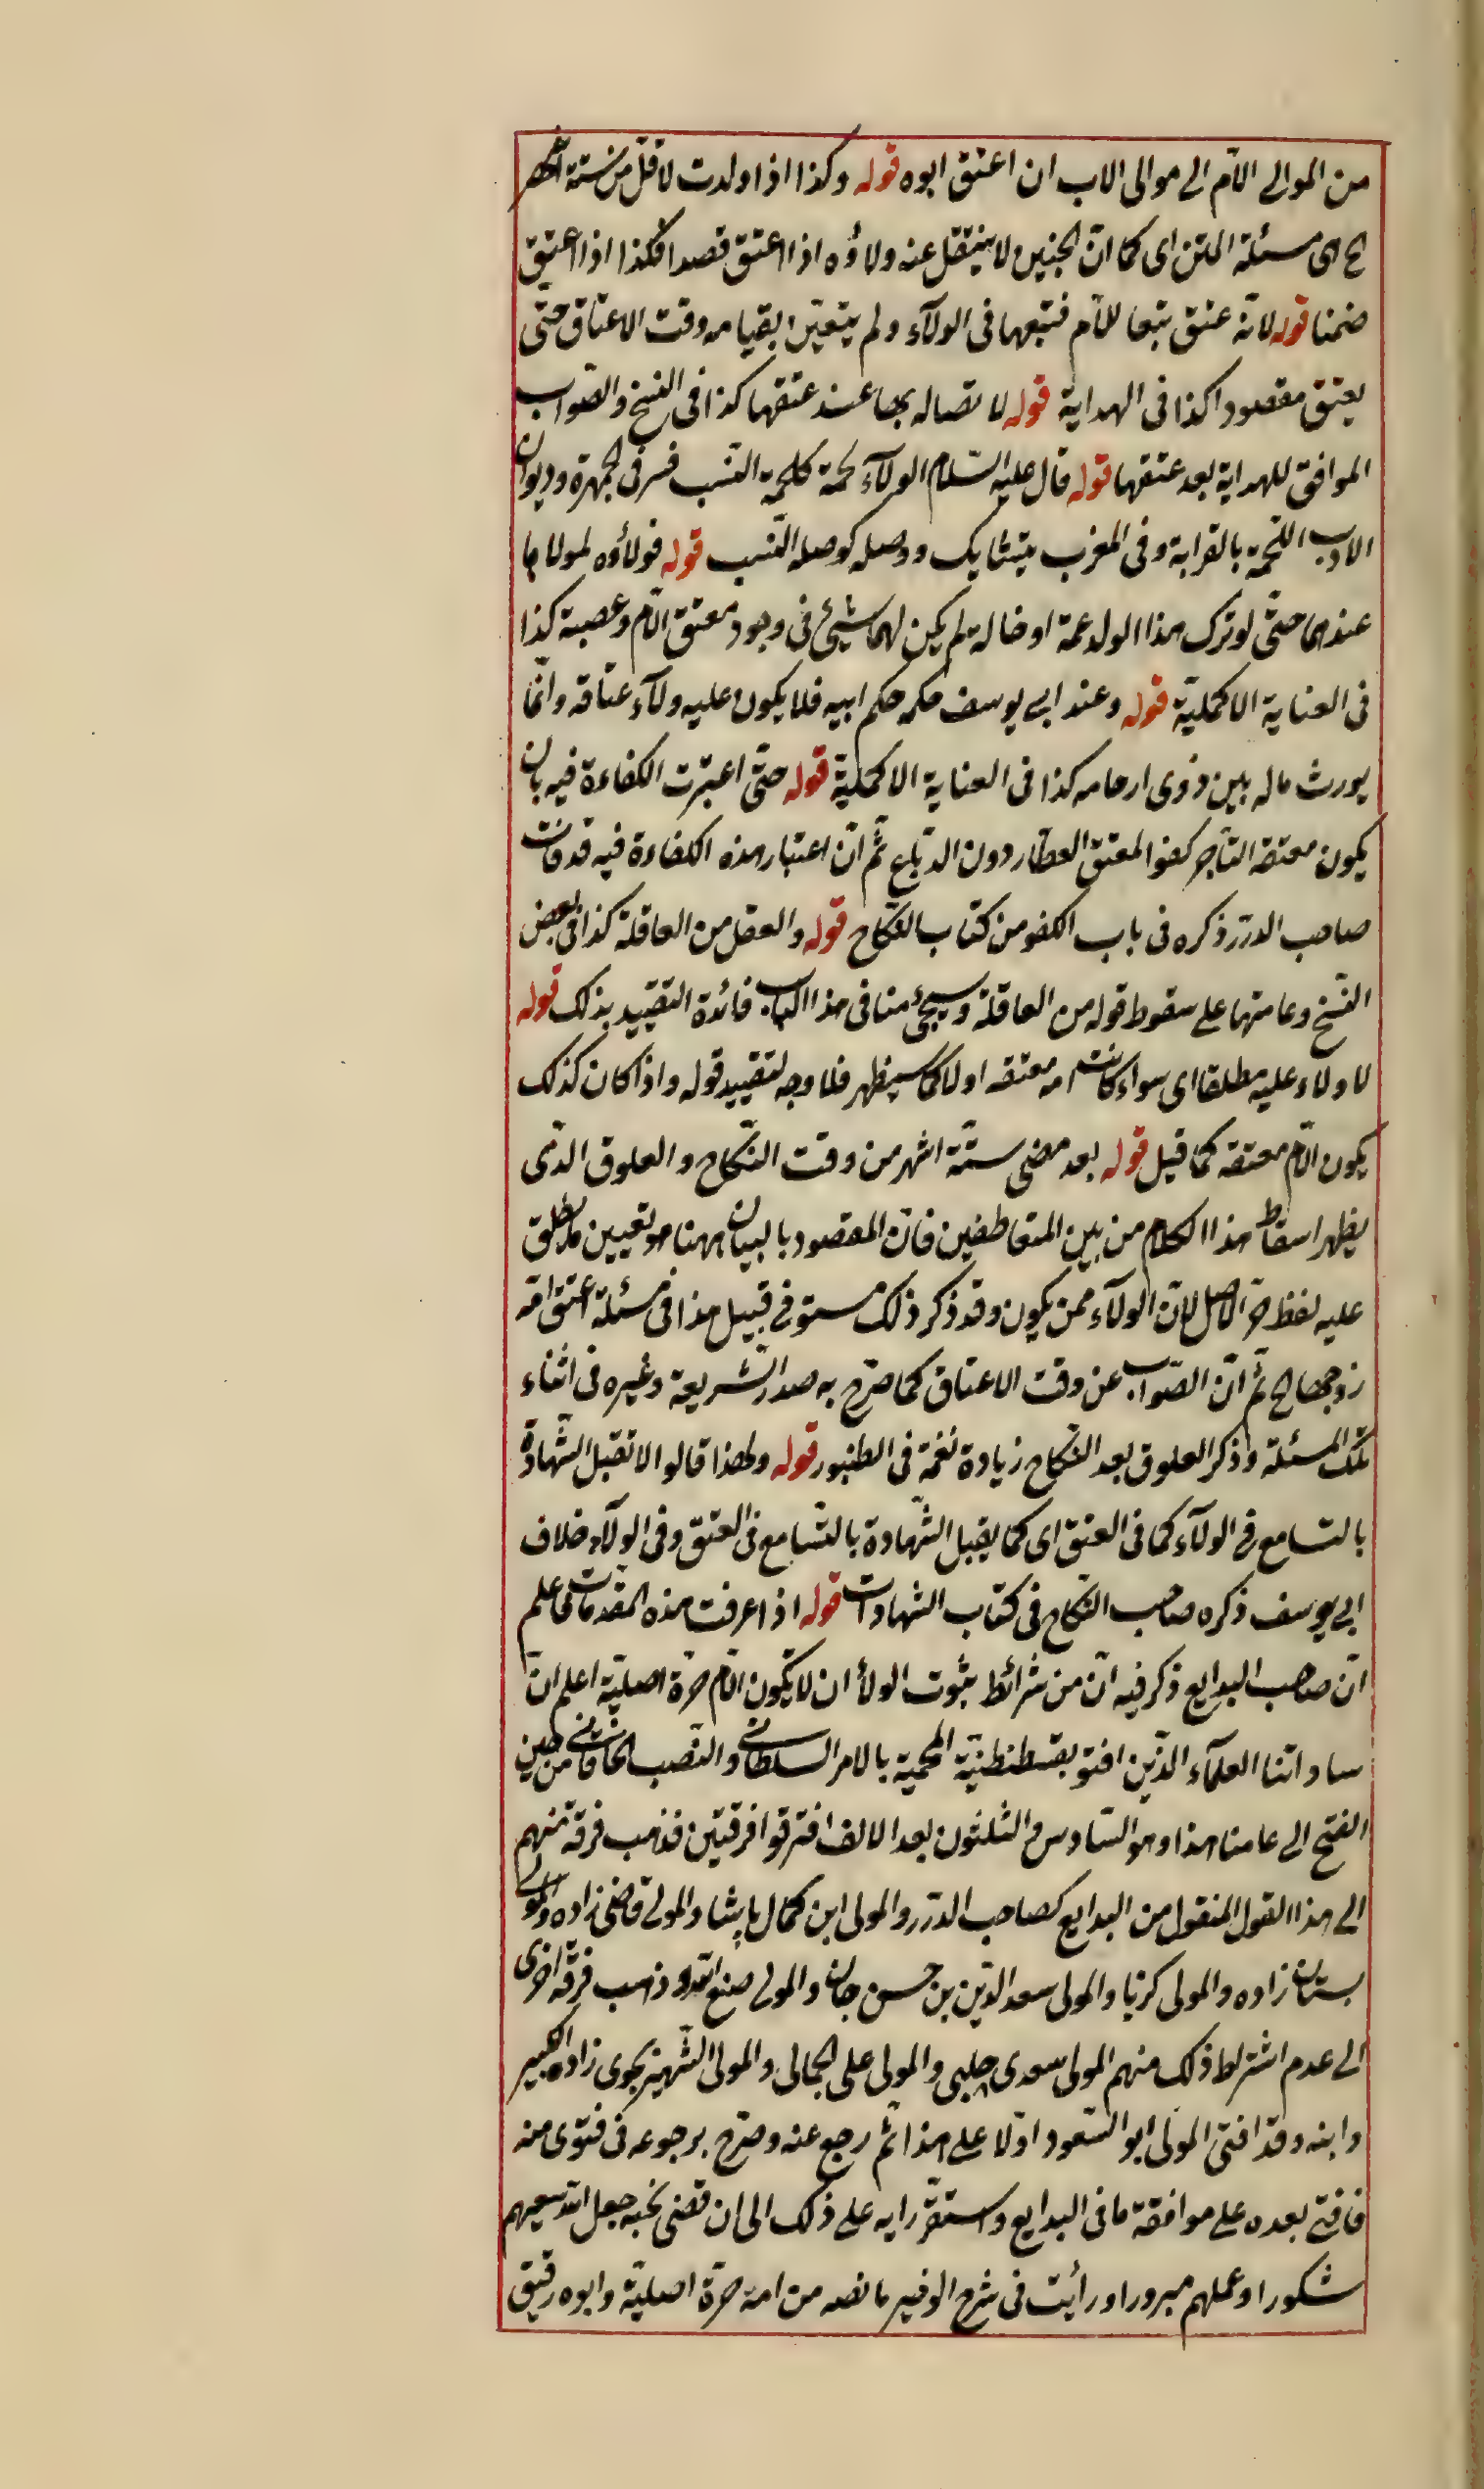 من الموالى الام الى موالى الاب ان اعتق ابوه قوله وكذا اذا ولدت لاقل من ستة اشهر
الخ اى مسئلة المتن اى كما انّ الجنين لا ينتقل عنه ولاؤه اذا اعتق قصدا فكذا اذا اعتق
ضمنا قوله لانّه عتق تبعا للام فتبعها فى الولآء ولم يتعيّن بقيامه وقت الاعتاق حتّى
يعتق مقصودا كذا فى الهداية قوله لاتصاله بها عند عتقها كذا فى النسخ والصّواب
الموافق للهداية بعد عتقها قوله قال عليه السّلام الولآء لحمة كلحمة النّسب فسر فى الجمهرة وديوان
الادب اللّحمة بالقرابة وفى المغرب يتشابك ووصله كوصله النّسب قوله فولاؤه لمولاها
عندهما حتّى لو ترك هذا الولد عمة او خالة لم يكن لهما شيئ فى وجود معتق الام وعصبته كذا
فى العناية الاكمليّة قوله وعند ابى يوسف حكمه حكم ابيه فلا يكون عليه ولآء عتاقة وانّما
يورث ماله بين ذوى ارحامه كذا فى العناية الاكمليّة قوله حتّى اعتبرت الكفاءة فيه بان
يكون معتقه التاجر كفوا لمعتق العطّار دون الدبّاغ ثمّ انّ اعتبار هذه الكفاءة فيه قد فات
صاحب الدّرر ذكره فى باب الكفو من كتاب النّكاح قوله والعقل من العاقلة كذا فى بعض
النّسخ وعامتها على سقوط قوله من العاقلة وسيجئ منا فى هذا الكتاب فائدة التقييد بذلك قوله
لا ولاء عليه مطلقا اى سواء كانت امه معتقه اولا كما سيظهر فلا وجه لتقييد قوله واذا كان كذلك
يكون الام معتقه كما قيل قوله بعد مضى ستّة اشهر من وقت النّكاح والعلوق الذى
يظهر اسقاط هذا الكلام من بين المتعاطفين فانّ المقصود بالبيان ههنا هو تعيين ما يطلق
عليه لفظ حرّ الاصل لانّ الولآء ممن يكون وقد ذكر ذلك مستوفى قبيل هذا فى مسئلة اعتق امّه
زوجها الخ ثمّ انّ الصّواب عن وقت الاعتاق كما صرّح به صدر الشّريعة وغيره فى اثناء
تلك المسئلة وذكر العلوق بعد النّكاح زيادة نغمة فى الطنبور قوله ولهذا قالوا لا تقبل الشّهادة
بالتسامع فى الولآء كما فى العتق اى كما يقبل الشّهادة بالتسامع فى العتق وفى الولآء خلاف
ابى يوسف ذكره صاحب النكاح فى كتاب الشهادات قوله اذا عرفت هذه المقدمات فاعلم
انّ صاحب البدايع ذكر فيه انّ من شرائط ثبوت الولاء ان لا يكون الام حرّة اصليّة اعلم انّ
ساداتنا العلمآء الذّين افتو بقسطنطنيّة المحمية بالامر السلطانى والنّصب الخاقانى من حين
الفتح الى عامنا هذا وهو السّادس والثلثون بعد الالف افترقوا فرقتين فذهب فرقة منهم
الى هذا القول المنقول من البدايع كصاحب الدّرر والمولى ابن كمال پاشا والمولى قاضى زاده والمولى
بستان زاده والمولى كريا والمولى سعد الدّين بن حسن جان والمولى صنع الله وذهب فرقة اخرى
الى عدم اشتراط ذلك منهم المولى سعدى چلبى والمولى على الجمالى والمولى الشّهير بجوى زاده الكبير
وابنه وقد افتى المولى ابو السّعود اوّلا على هذا ثم رجع عنه وصرّح برجوعه فى فتوى منه
فافتى بعده على موافقة ما فى البدايع واستقرّ رايه على ذلك الى ان قضى نحبه جعل الله سعيهم
شكورا وعملهم مبرورا ورأيت فى شرح الوفير ما نصه من امه حرّة اصليّة وابوه رقيق